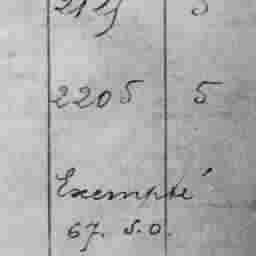 2205 5
Exempté
67. S.O.